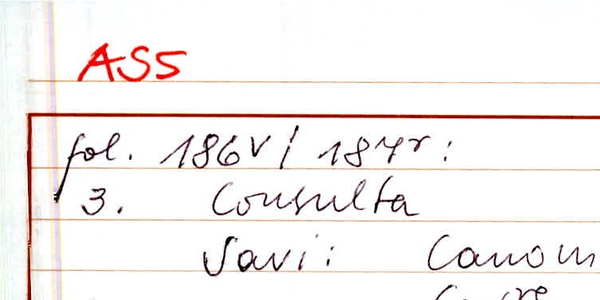 ASS
fol. 186v / 187r:
3. Consulta
Savi: Canon